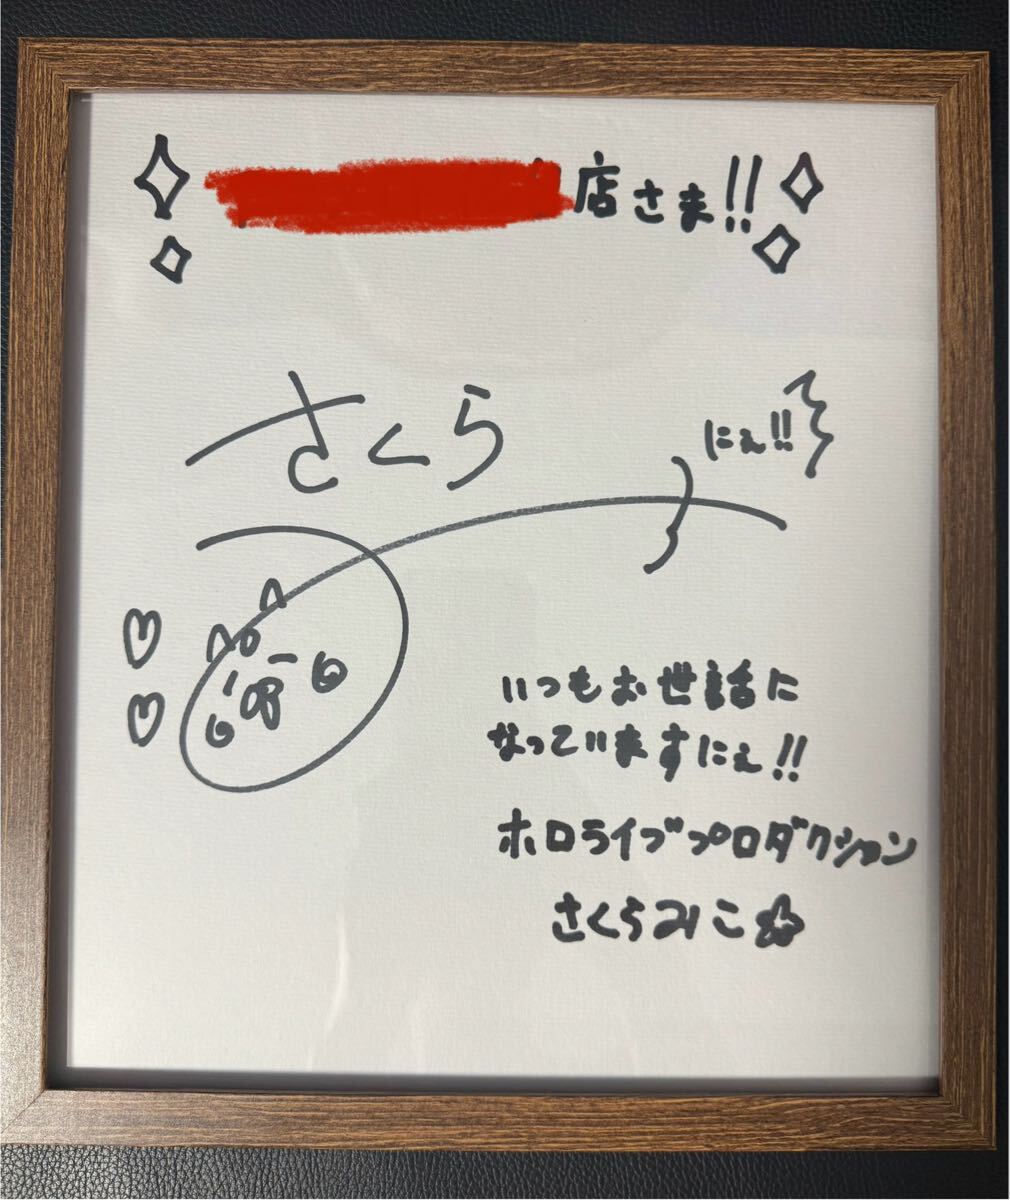 店さま!!
さくら
にぇ!!
いつもお世話に
なっていますにぇ!!
ホロライブプロダクション
さくらみこ